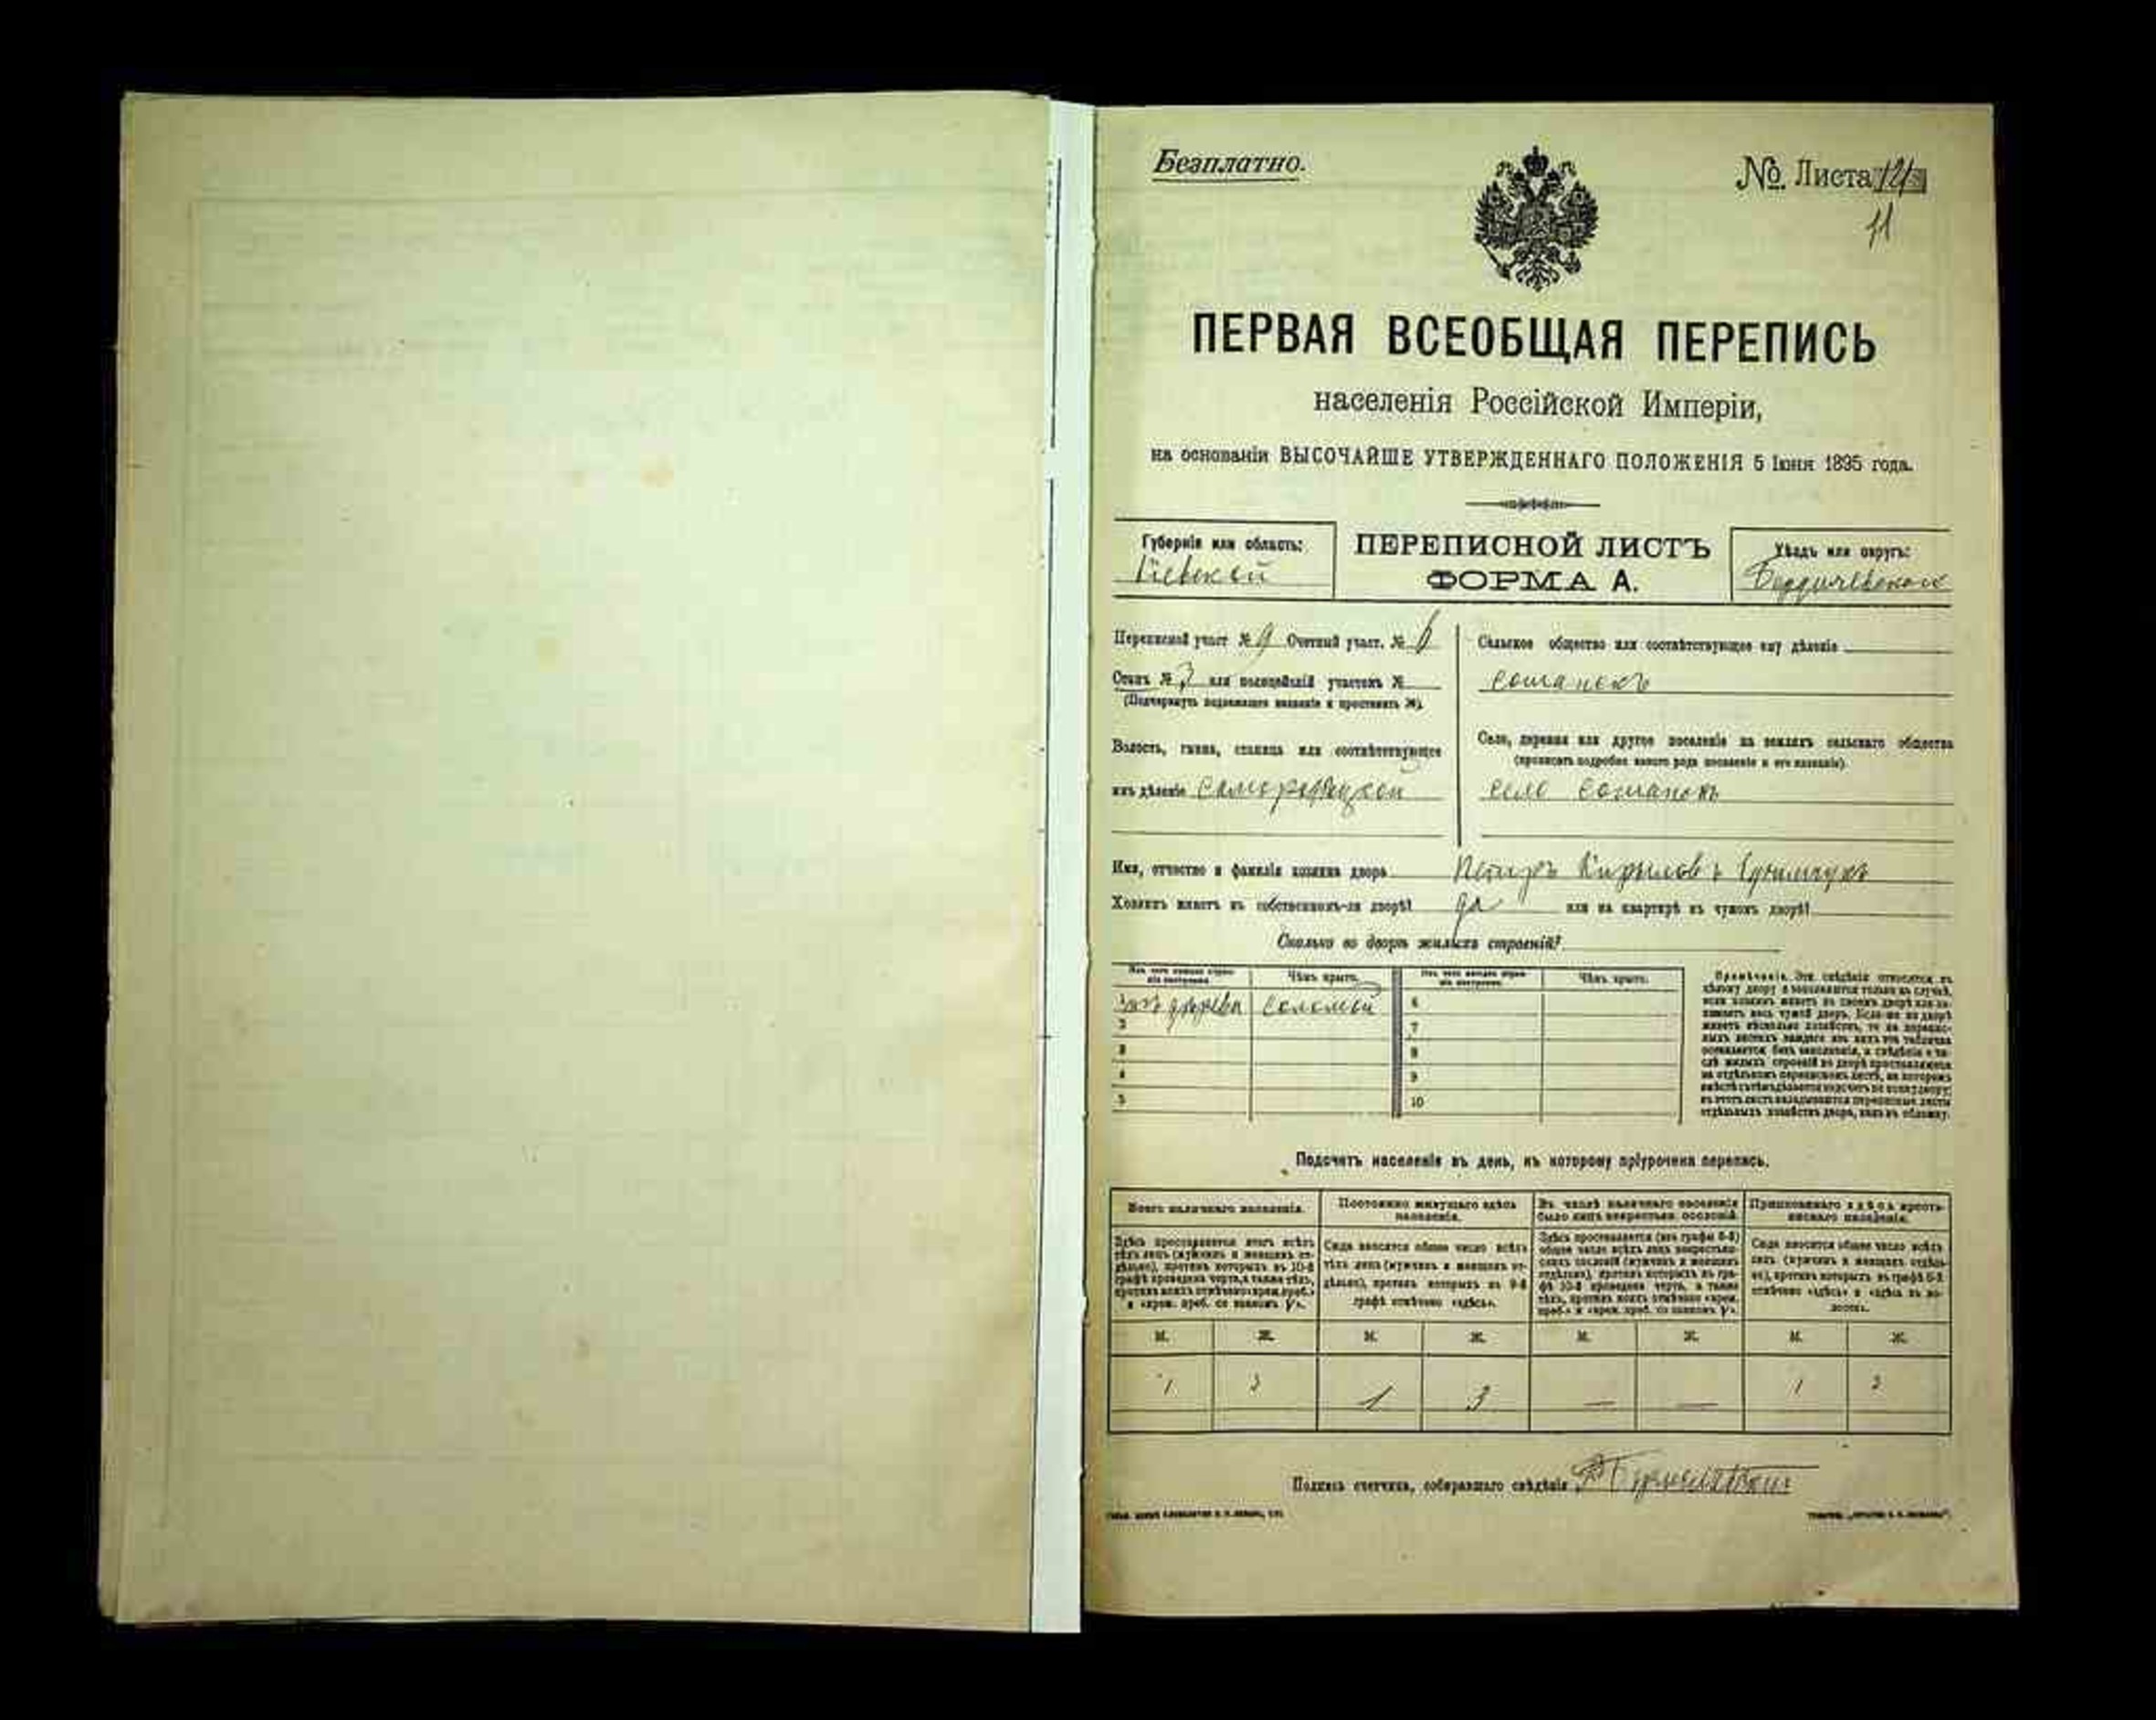 Безплатно.
№ Листа 12
11
ПЕРВАЯ ВСЕОБЩАЯ ПЕРЕПИСЬ
населенія Россійской Имперіи,
на основаніи ВЫСОЧАЙШЕ УТВЕРЖДЕННАГО ПОЛОЖЕНІЯ 5 Іюня 1895 года.
Губернія или область:
Кіевской
ПЕРЕПИСНОЙ ЛИСТЪ
ФОРМА А.
Уѣздъ или округъ:
Бердичевскаго
Переписной участ. № 9 Счетный участ. № 6
Станъ № 3 или полицейскій участокъ №
(Подчеркнуть подлежащее названіе и проставить №).
Волость, гмина, станица или соотвѣтствующее
имъ дѣленіе Самогородецкой
Сельское общество или соотвѣтствующее ему дѣленіе
Сошанскъ
Село, деревня или другое поселеніе на земляхъ сельскаго общества
(прописать подробно какого рода поселеніе и его названіе).
село Сошанскъ
Имя, отчество и фамилія хозяина двора Петръ Кирыловъ
Хозяинъ живетъ въ собственномъ-ли дворѣ? да или на квартирѣ въ чужомъ дворѣ?
Сколько во дворѣ жилыхъ строеній?
Изъ чего каждое строеніе построено. Чѣмъ крыто. Изъ чего каждое строеніе построено. Чѣмъ крыто.
1 изъ дерева соломой 6
2 7
3 8
4 9
5 10
Примѣчаніе. Эти свѣдѣнія относятся къ
цѣлому двору и заполняются только въ случаѣ,
если хозяинъ живетъ въ своемъ дворѣ или за-
нимаетъ весь чужой дворъ. Если-же во дворѣ
живетъ нѣсколько хозяйствъ, то на перепис-
ныхъ листахъ каждаго изъ нихъ эта табличка
оставляется безъ заполненія, а свѣдѣнія о чи-
слѣ жилыхъ строеній во дворѣ проставляются
на отдѣльномъ переписномъ листѣ, на которомъ
въ этотъ листъ вкладываются переписные листы
отдѣльныхъ хозяйствъ двора, какъ въ обложку.
Подсчетъ населенія въ день, къ которому пріурочена перепись.
Всего наличнаго населенія.
Здѣсь проставляется итогъ всѣхъ
тѣхъ лицъ (мужчинъ и женщинъ от-
дѣльно), противъ которыхъ въ 10-й
графѣ проведена черта, а также тѣхъ,
противъ коихъ отмѣчено «врем. преб.»
и «врем. преб. со знакомъ V».
Постоянно живущаго здѣсь
населенія.
Сюда вносится общее число всѣхъ
тѣхъ лицъ (мужчинъ и женщинъ от-
дѣльно), противъ которыхъ въ 9-й
графѣ отмѣчено «здѣсь».
Въ числѣ наличнаго населенія
было лицъ некрестьян. сословій.
Здѣсь проставляется (изъ графы 6-й)
общее число всѣхъ лицъ некрестьян-
скихъ сословій (мужчинъ и женщинъ
отдѣльно), противъ которыхъ въ гра-
фѣ 10-й проведена черта, а также
тѣхъ, противъ коихъ отмѣчено «врем.
преб.» и «врем. преб. со знакомъ V».
Приписаннаго здѣсь кресть-
янскаго населенія.
Сюда вносится общее число всѣхъ
лицъ (мужчинъ и женщинъ отдѣль-
но), противъ которыхъ въ графѣ 8-й
отмѣчено «здѣсь» и «здѣсь въ во-
лости».
М. Ж. М. Ж. М. Ж. М. Ж.
1 3 1 3 — — 1 3
Подпись счетчика, собиравшаго свѣдѣнія